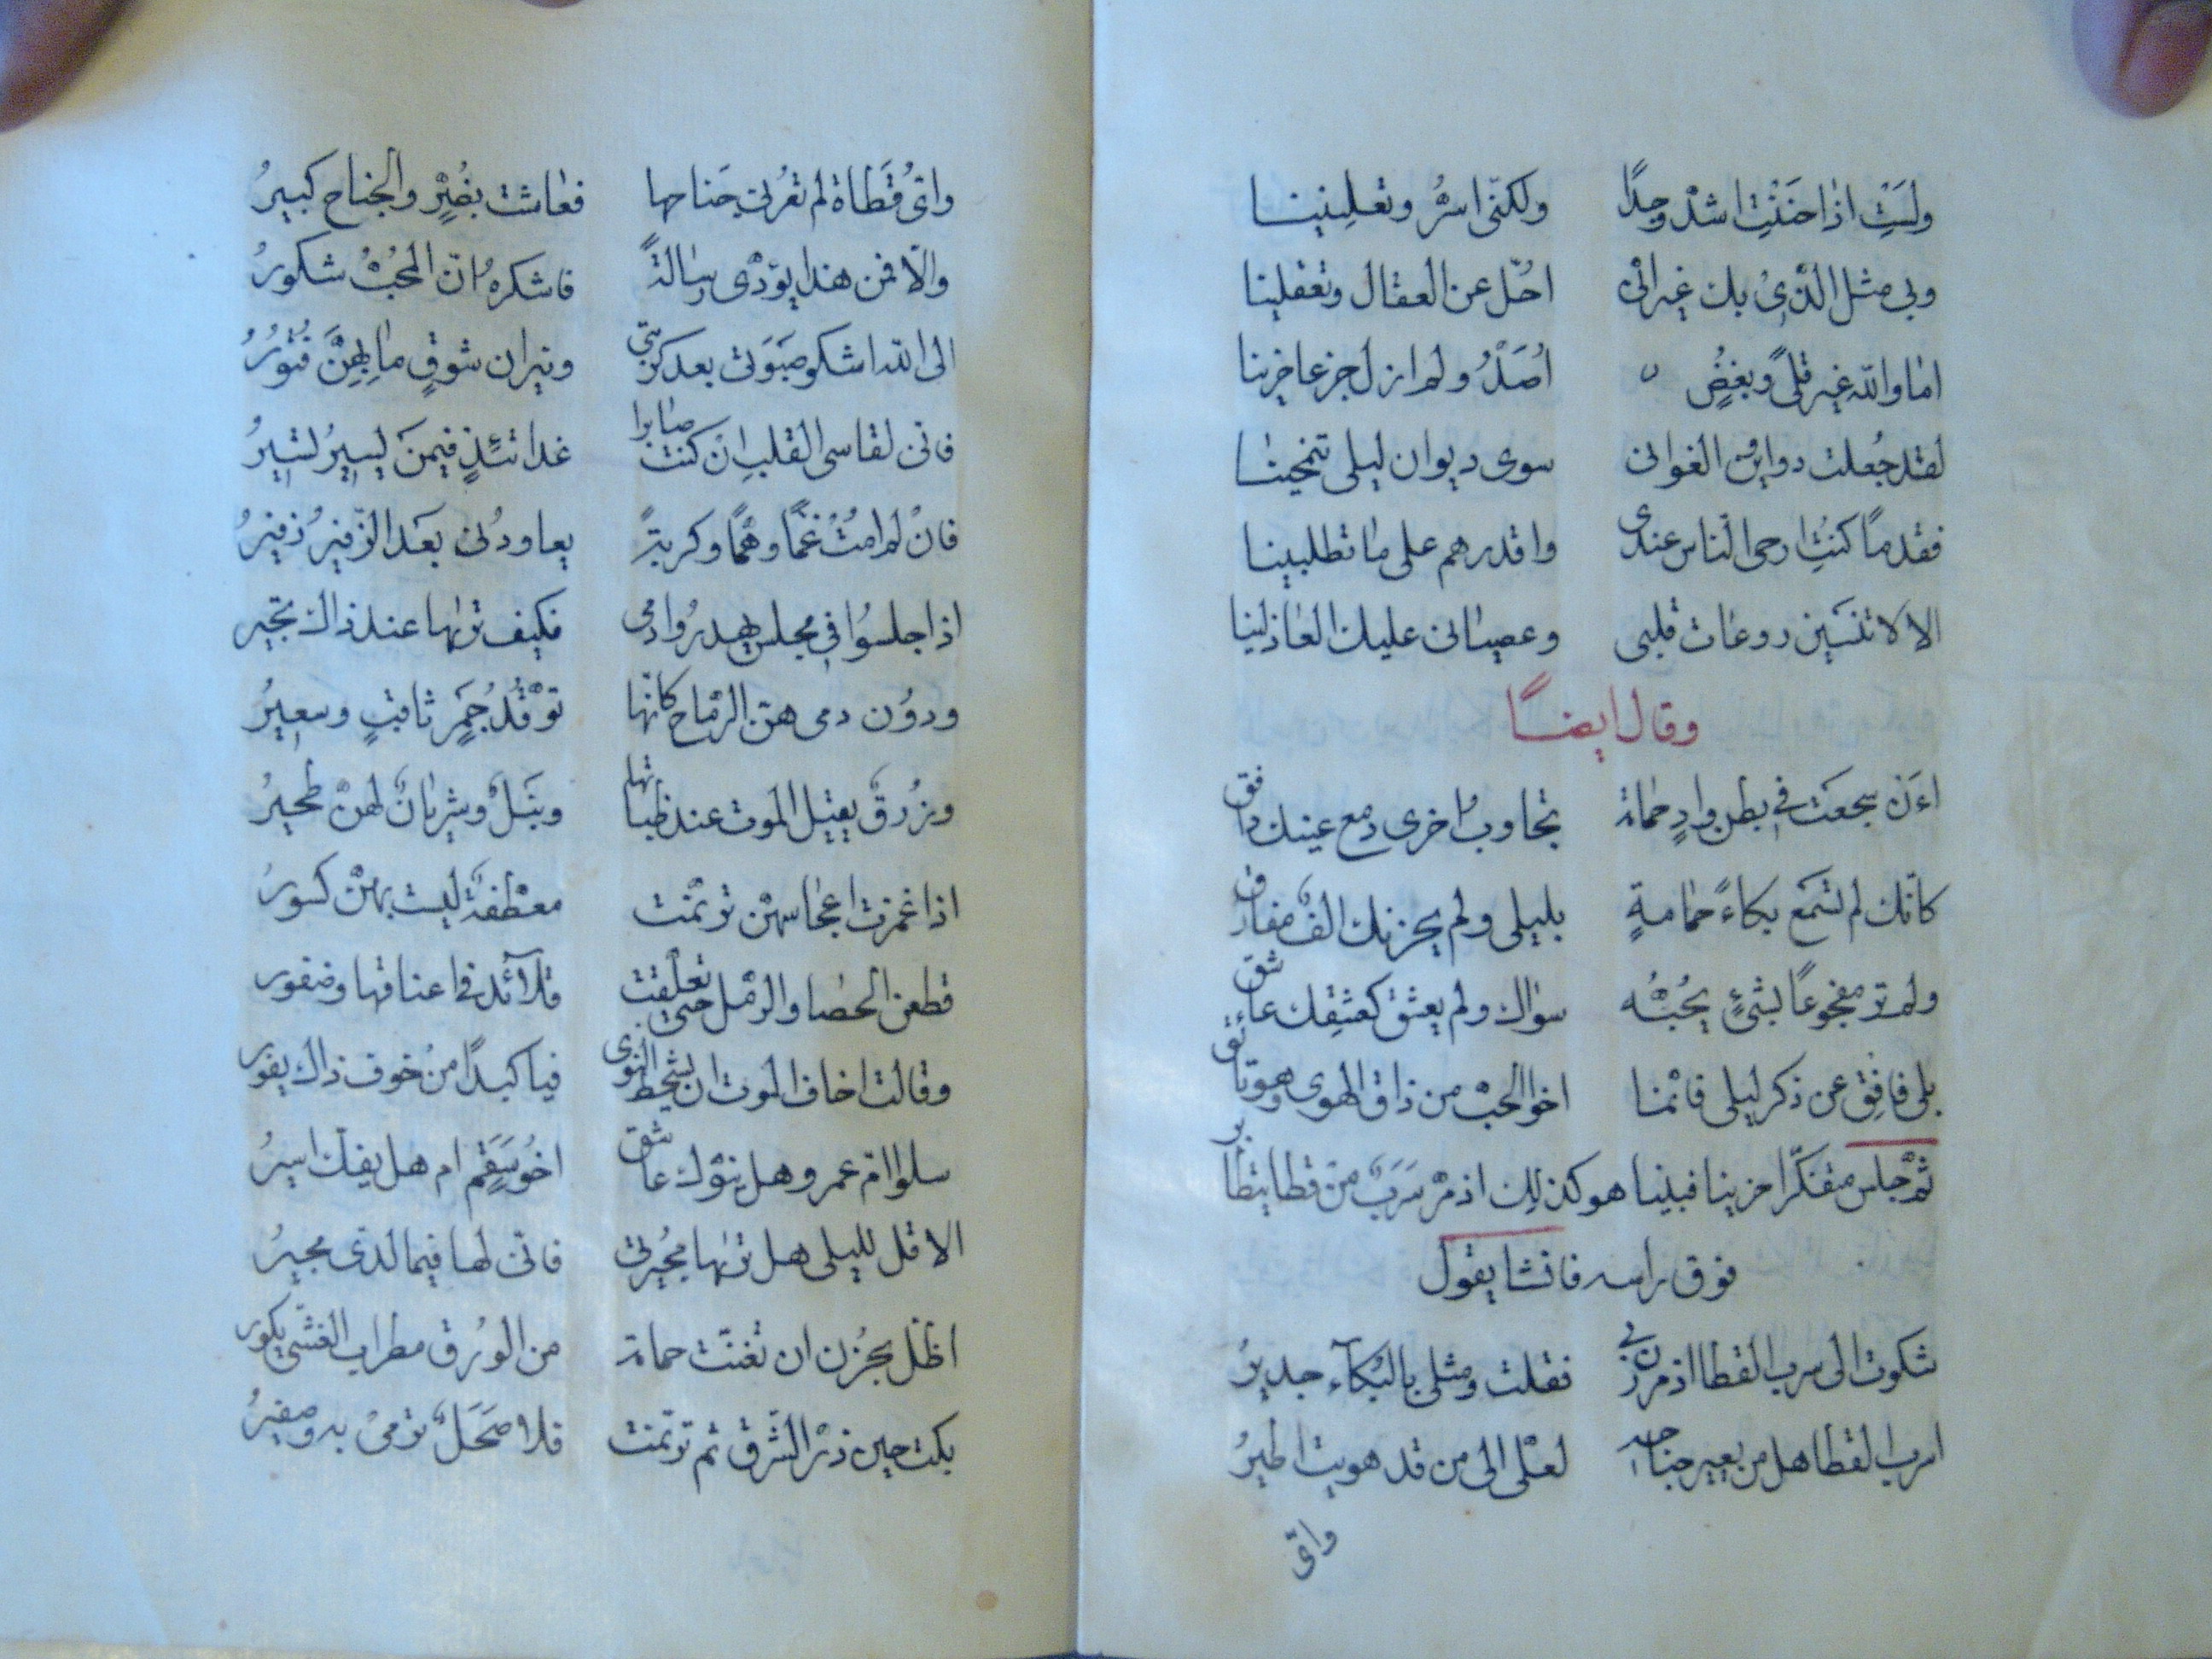 ولست اذا حننت اشد وجدًا ولكنّى اسرُّ وتعلِنينا
وبى مثل الّذى بك غير انّى احُلّ عن العقال وتعقلينا
اما والله غير قلىً وبغضٍ اُصَدُّ ولم ازل جزعا حزينا
لقد جُعلت دواوين الغوانى سوى ديوان ليلى تمّحينا
فقد ما كنتِ ارجى النّاس عندى واقدرهم على ما تطلبينا
الا لا تنسَيِن روعات قلبى وعصيانى عليك العاذلينا
وقال ايضًا
اءَن سجعَت فى بطن وادٍ حمامة تجاوب اخرى دمع عينك دافق
كانّك لم تسمَع بكاءً حمامةٍ بليلى ولم يحزنك الفٌ مفارق
ولم تر مفجوعًا بشئٍ يحُبُّه سواك ولم يعشق كعشقِك عاشق
بلى فافِق عن ذكر ليلى فانّما اخو الحبّ من ذاق الهوى وهو تائق
ثمّ جلس متفكّرا حزينا فبينا هو كذلك اذ مرّ سَرَبٌ من قطا يتطاير
فوق راسه فانشا يقول
شكوت الى سرب القطا اذ مررن بى فقلت ومثلى بالبُكآء جديرُ
اسرب القطا هل من يعير جناحه لعلّى الى من قد هويت اطيرُ
واىّ
واىُّ قَطاة لم تعُرنى جَناحها فعاشت بضُيٍّر والجناح كبيرُ
والّا فمن هذا يؤدّى رسالةً فاشكرهُ انّ المحُبّ شكورُ
الى الله اشكو صَبْوَتى بعد كربتى ونيران شوقٍ ما بِهِنَّ فتُورُ
فانى لقاسى القلب ان كنت صابرا غدا تئذٍ فيمن يسيرُ لسيرُ
فانْ لم امُتْ غمًّا وهمًّا وكربةً يعاودُنى بعَد الزّفيرُ زفيرُ
اذا جلسُوا فى مجلس يهدروا دمى فكيف ترٰيها عند ذاك تجير
ودوُن دمى هزّ الرّماح كانّها توَقُّدُ جُمَرٍ ثاقبٍ وسعيرُ
وزُرقٌ يقيل الموت عند ظباتهم ونَبلٌ وشريانٌ لهنّ طحيرُ
اذا غمزت اعجاسهنّ ترنّمت معطّفةٌ ليست بهنّ كسورُ
قطعن الحصا والرّمل حتى تعلّقت قلآئد فى اعناقها وضفور
وقالت اخاف الموت ان يشحط النوى فيا كبدًا من خوف ذاك يفور
سلوا امّ عمرو هل ينوّلُ عاشق اخوُ سَقَمٍ ام هل يفكّ اسيرُ
الا قل لليلى هل ترٰيها مُجيرتى فانى لها فيما لدىّ مجيرُ
اظّل بحُزن ان تغنّت حمامة من الوُرق مطراب العشّى بكور
بكت حين ذرّ الشّرق ثم ترنّمت فلا صَحَلٌ ترمىْ به وصفيرُ